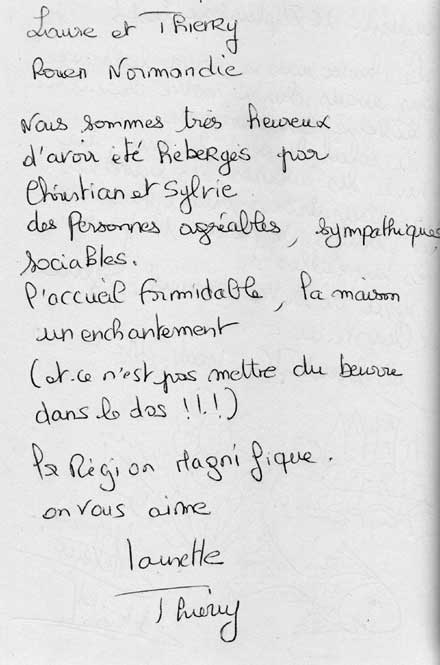 Laure et Thierry
Rouen Normandie
Nous sommes très heureux
d'avoir été héberges par
Christian et Sylvie
des Personnes agréables, sympathiques
sociables.
l'accueil formidable, la maison
un enchantement
(et ce n'est pas mettre du beurre
dans le dos !!!!)
la Région Magnifique.
on vous aime
laurette
Thierry